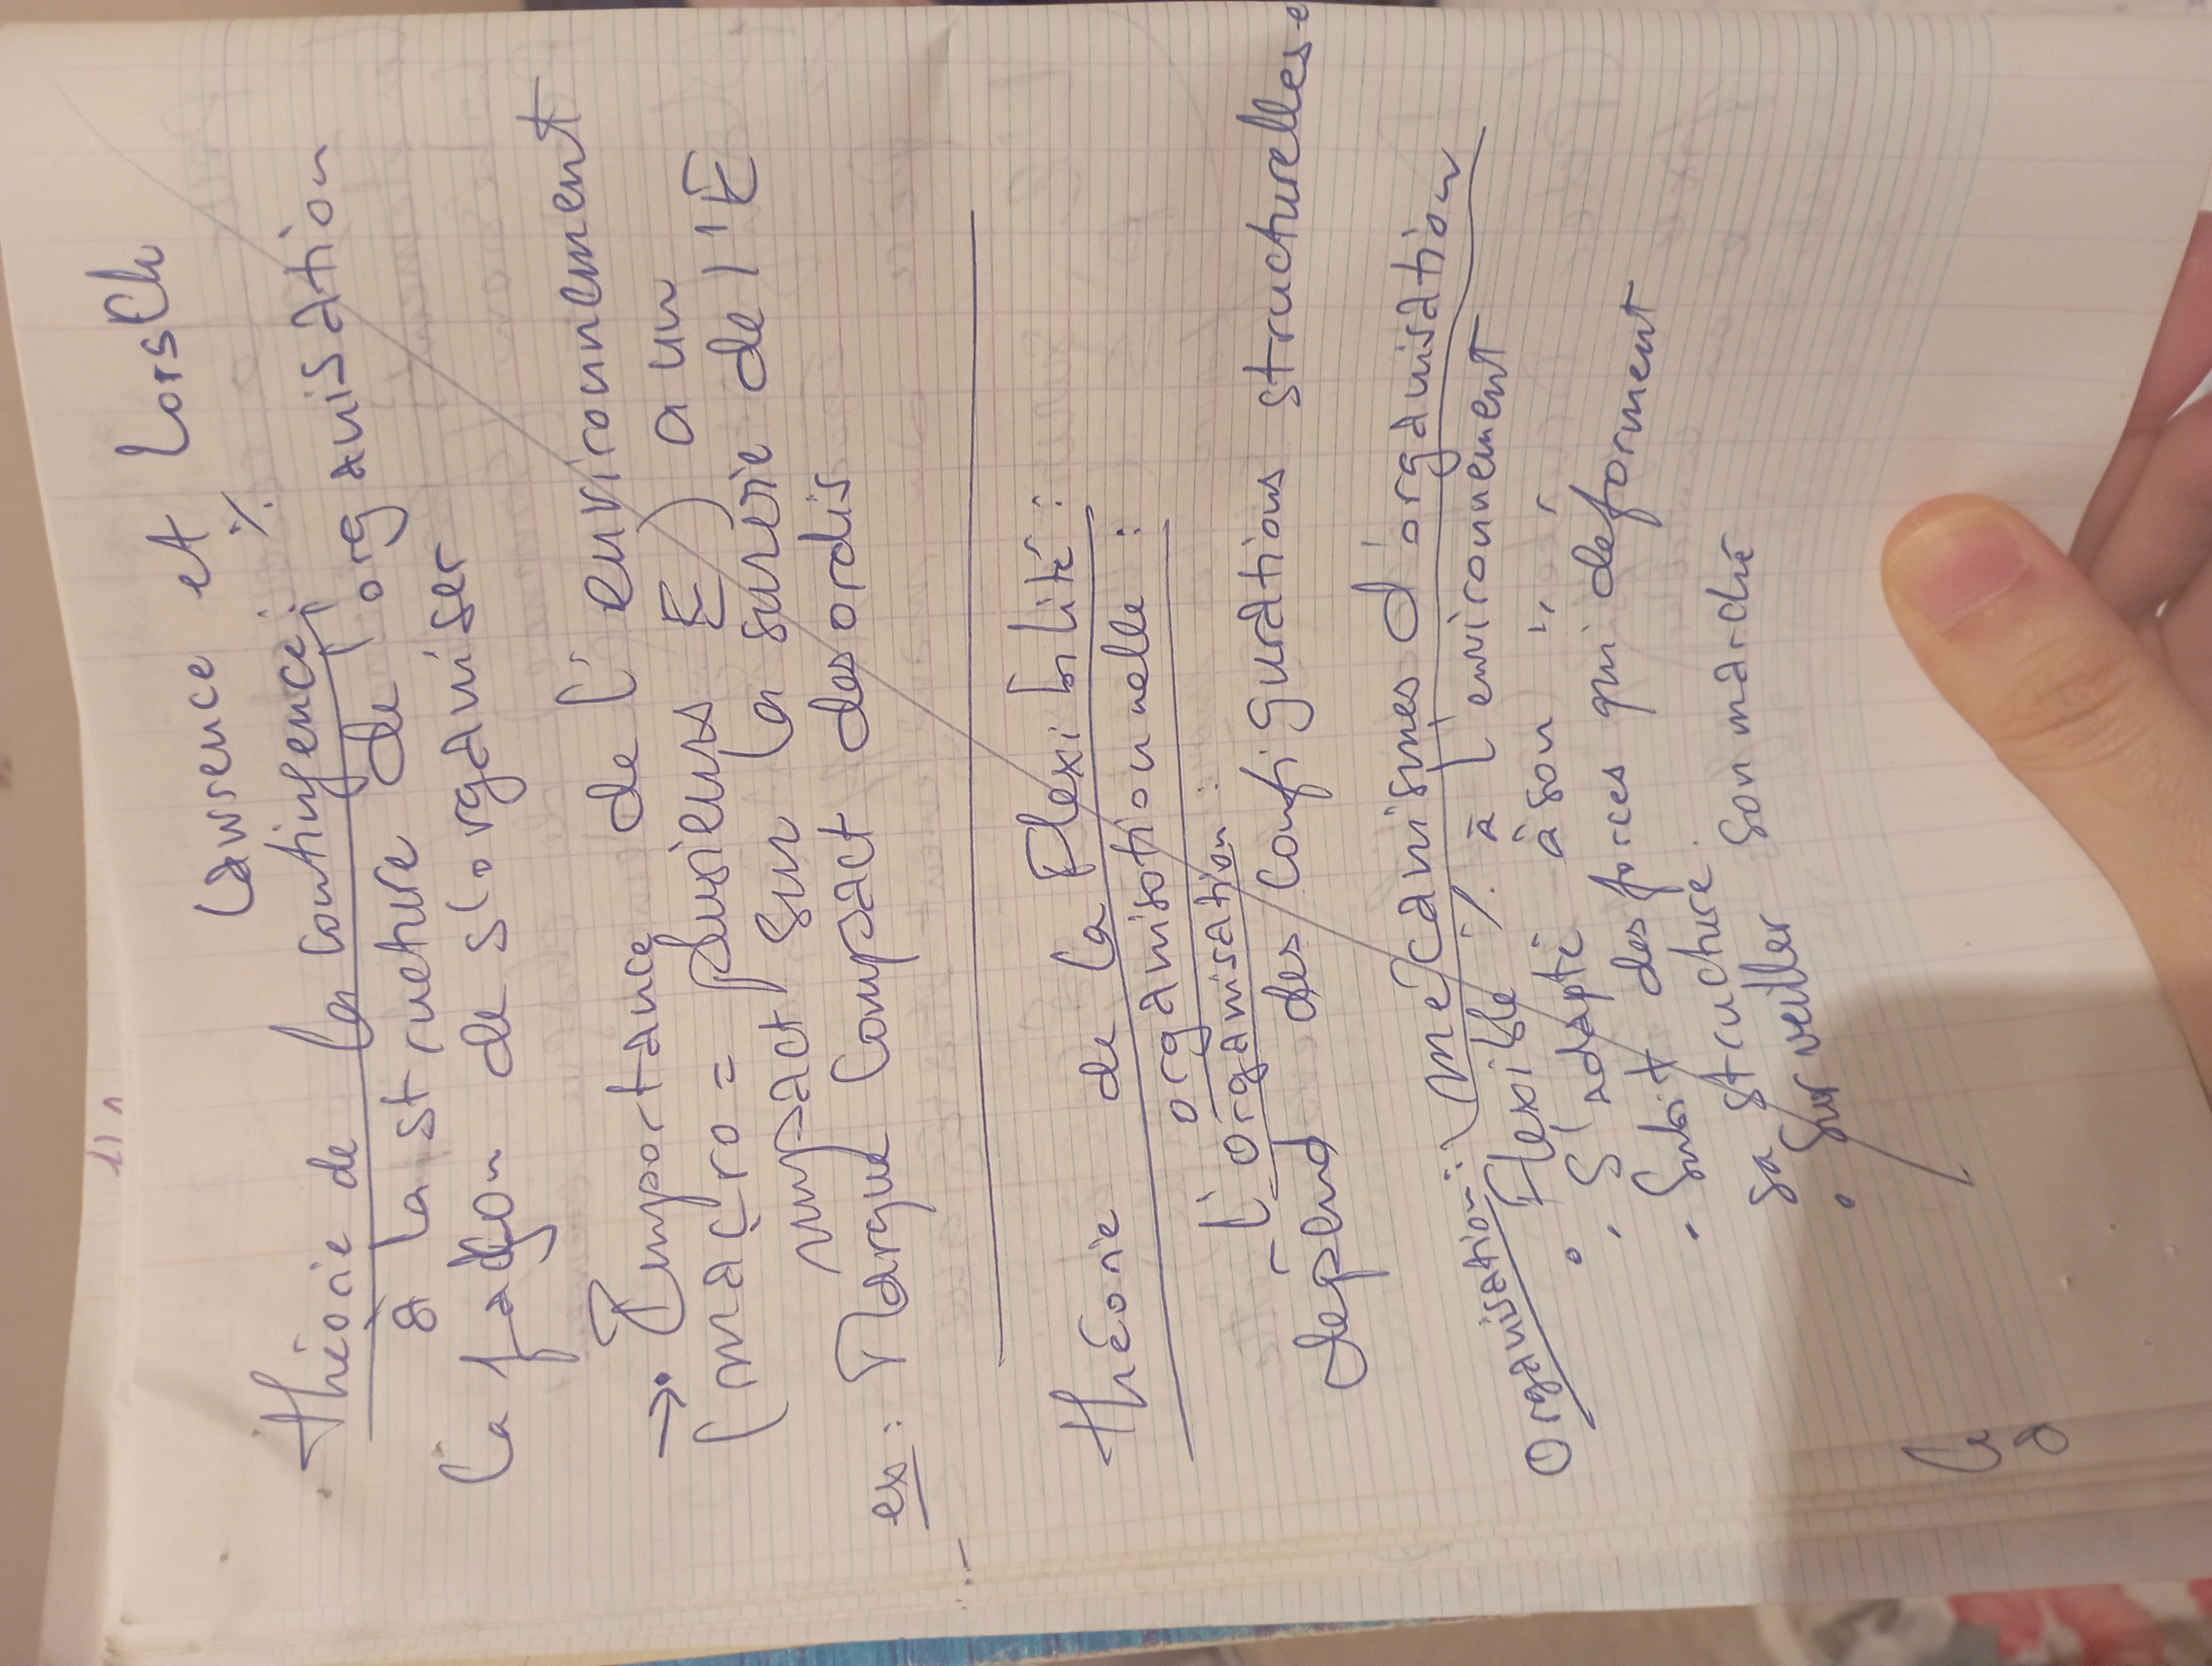 Lawrence et Lorsch
théorie de la contingence : %
à la structure de l'organisation
la façon de s'organiser
→ • Importance de l'environnement
(macro = plusieurs E) a un
impact sur la survie de l'E
ex : Marque Compact des ordis
théorie de la Flexibilité :
organisationnelle :
- l'organisation :
dépend des configurations structurelles
Organisation : mécanismes d'organisation
• Flexible % à l'environnement
- S'adapté à son " "
- Subit des forces qui deforment
sa structure.
• Surveiller son marché